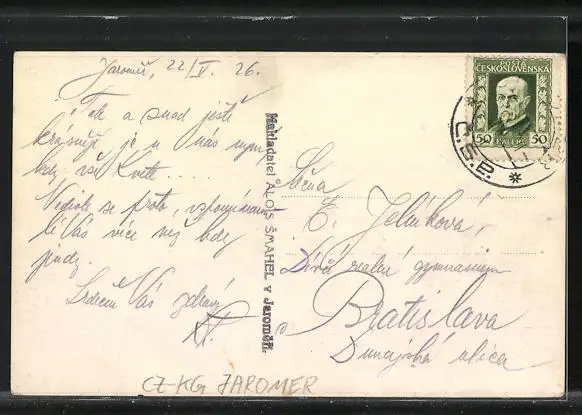 Jaroměř, 22/V. 26.
Tak a snad ještě
krásnější je u nás nyní
kdy vše kvete....
Nedivte se proto, vzpomenu
li Vás více než kdy
jindy.
Srdečně Vás zdraví
Nakladatel ALOIS ŠMAHEL v Jaroměři.
POŠTA
ČESKOSLOVENSKÁ
50 HALÉŘŮ 50
Č.S.P.
Slečna
E. Jelínková,
Dívčí reálné gymnasium
Bratislava
Dunajská ulica
CZ-KG JAROMER